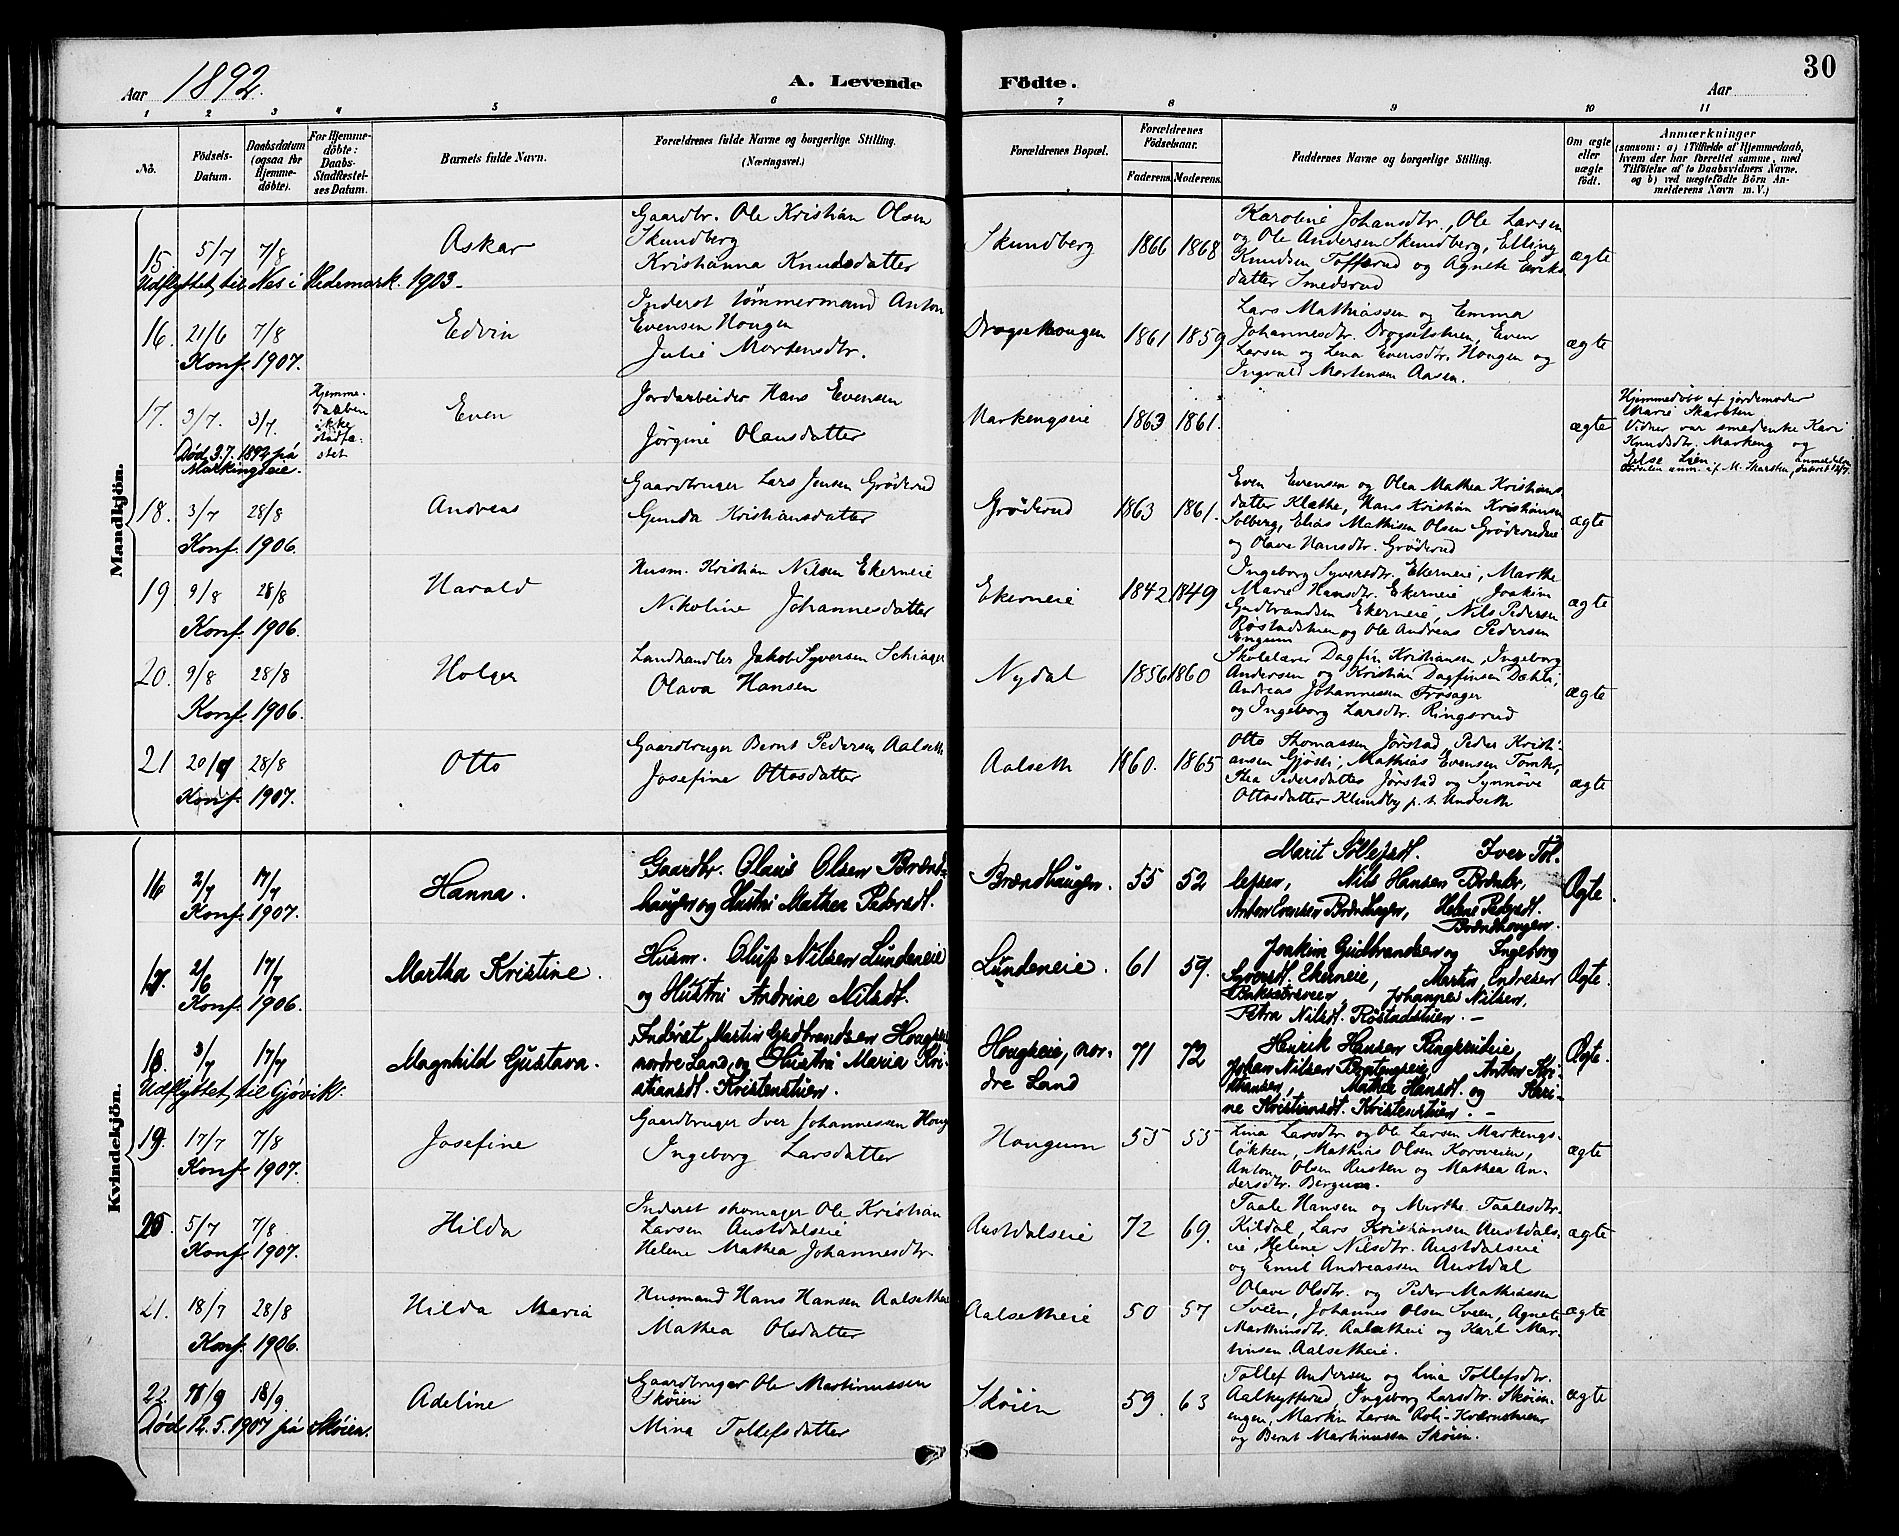 30
Aar 1892.
A. Levende Födte.
Aar
1 2 3 4 5 6 7 8 9 10 11
No.
Födsels-
Datum.
Daabsdatum
(ogsaa for
Hjemme-
döbte).
For Hjemme-
döbte:
Daabs-
Stadfæstel-
ses Datum.
Barnets fulde Navn.
Forældrenes fulde Navne og borgerlige Stilling.
(Næringsvei.)
Forældrenes Bopæl.
Forældrenes
Födselsaar.
Faderens. Moderens.
Faddernes Navne og borgerlige Stilling.
Om ægte
eller
uægte
födt.
Anmærkninger
(saasom: a) i Tilfælde af Hjemmedaab,
hvem der har forrettet samme, med
Tilföielse af to Daabsvidners Navne.
og b) ved uægtefödte Börn An-
melderens Navn m. V.)
Mandkjön.
15 5/7 7/8 Askar
Gaardbr. Ole Kristian Olsen
Skundberg
Kristianna Knudsdatter
Skundberg 1866 1868
Karoline Johansdtr., Ole Larsen
og Ole Andersen Skundberg, Elling
Knudsen Tofferud og Agnete Eriks
datter Smedsrud
ægte
Udflyttet til Nes i Hedemark. 1903.
16. 21/6 7/8 Edvin
Inderst tömmermand Anton
Evensen Hougen
Julie Mortensdtr.
1861 1859
Lars Mathiassen og Emma
Johannesdtr. Drogsetstuen, Even
Larsen og Lena Evensdtr. Hougen og
Ingvald Mortensen Aasen.
ægte
Konf. 1907.
17. 3/7. 3/7.
Hjemme-
daaben
ikke
stadfæ-
stet
Even
Jordarbeider Hans Evensen
Jørgine Olausdatter
Markengseie 1863 1861.
ægte
Hjemmedøbt af jordemoder
Marie Skarsten
Vidner var smedenke Kari
Knudsdtr. Markeng og
Else Lien
Død 3.7. 1892 på
Markingseie.
18. 3/7 28/8 Andreas
Gaardbruger Lars Jensen Grøderud
Gunda Kristiansdatter
Grøderud 1863 1861.
Even Evensen og Olea Mathea Kristians
datter Klæthe, Hans Kristian Kristiansen
Solberg, Elias Mathisen Olsen Grøderudeie
og Olave Hansdtr. Grøderud
ægte
Konf. 1906.
19 9/8 28/8 Harald
Husm. Kristian Nilsen Ekerneie
Nikoline Johannesdatter
Ekerneie 1842 1849
Ingeborg Syversdtr. Ekerneie, Marthe
Marie Hansdtr. Ekerneie, Joakim
Gudbrandsen Ekerneie, Nils Pedersen
Røstadstuen og Ole Andreas Pedersen
Engum
ægte
Konf. 1906.
20. 9/8 28/8 Holger
Landhandler Jakob Syversen Schiager
Olava Hansen
Nydal 1856 1860
Skolelærer Dagfin Kristiansen, Ingeborg
Andersen og Kristian Dagfinsen Dæhli,
Andreas Johannessen Frosager
og Ingeborg Larsdtr. Ringsrud
ægte
Konf. 1906.
21 20/7 28/8 Otto
Gaardbruger Bernt Pedersen Aalseth
Josefine Ottosdatter
Aalseth 1860. 1865
Otto Thomassen Jørstad, Peder Kristi-
ansen Gjøsli, Mathias Evensen Tomter,
Thea Pedersdatter Jørstad og Synnøve
Ottosdatter Klundby p.t. Undseth
ægte
Konf. 1907.
Kvindekjön.
16 2/7 17/7 Hanna.
Gaardbr. Olaus Olsen Brænd-
haugen og Hustru Mathea Pedersdt.
Brændhaugen. 55 52
Marit Tollefsdt. Iver Tol-
lefsen, Nils Hansen
Anton Evensen Brændhagen, Helene Pedersdt.
Brændhaugen.
Ægte.
Konf. 1907.
17. 2/6 17/7 Martha Kristine.
Husm. Oluf Nilsen Lundeneie
og Hustru Andrine Nilsdt.
Lundeneie. 61 59.
Joakim Gudbrandsen og Ingeborg
Syversdt. Ekerneie, Martin Endresen
Johannes Nilsen,
Petra Nilsdt. Røstadstuen. —
Ægte.
Konf. 1906.
18. 3/7 17/7 Magnhild Gustava.
Inderst Martin Gudbrandsen Hougseie
nordre Land, og Hustru Maria Kri-
stiansdt. Kristenstuen.
Hougseie, nor-
dre Land 71 72
Henrik Hansen Ringsrudeie
Johan Nilsen Anton Kri-
stiansen, Mathea Hansdt. og Kari-
ne Kristiansdt. Kristenstuen. —
Ægte.
Udflyttet til Gjøvik.
19. 17/7 7/8 Josefine
Gaardbruger Iver Johannessen Houg
Ingeborg Larsdatter
Hougum 55 55
Lina Larsdtr. og Ole Larsen Markengs-
løkken, Mathias Olsen Korsveien,
Anton Olsen Rusten og Mathea An-
dersdtr. Bergum.
ægte
Konf. 1907.
20. 5/7 7/8 Hilda
Inderst skomager Ole Kristian
Larsen Austdalseie
Helene Mathea Johannesdtr.
Austdalseie 72 69.
Taale Hansen og Marthe Taalesdtr.
Kildal, Lars Kristiansen Austdals-
eie, Helene Nilsdtr. Austdalseie
og Emil Andreassen Austdal
ægte
Konf. 1907.
21. 18/7 28/8 Hilda Maria
Husmand Hans Hansen Aalsetheie
Mathea Olsdatter
Aalsetheie 50 57
Olave Olsdtr. og Peder Mathiassen
Sveen, Johannes Olsen Sveen, Agnete
Martinusdtr. Aalsetheie og Karl Mar-
tinsen Aalsetheie.
ægte
Konf. 1906.
22. 18/9 Adeline
Gaardbruger Ole Martinussen
Skøien
Mina Tollefsdatter
Skøien 59. 63
Tollef Andersen og Lina Tollefsdtr.
Ingeborg Larsdtr. Skøien-
engen, Martin Larsen
og Bernt Martinussen Skøien.
ægte
Død 12.5.1907 på Skøien.